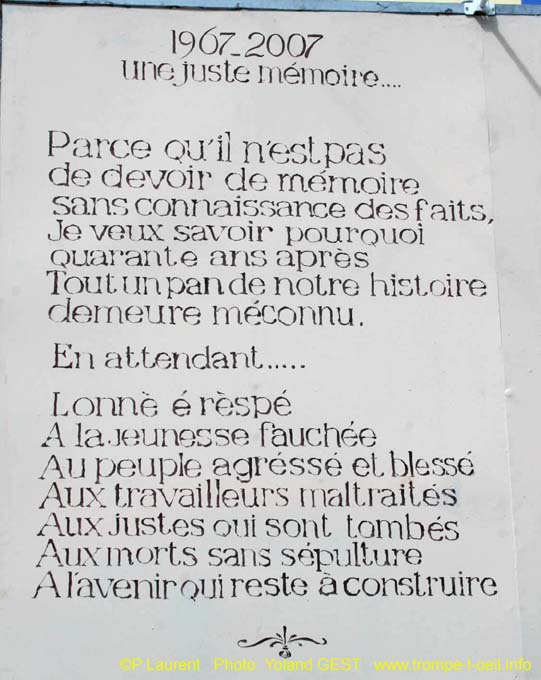 1967-2007
une juste mémoire....
Parce qu'il n'est pas
de devoir de mémoire
sans connaissance des faits,
Je veux savoir pourquoi
quarante ans après
Tout un pan de notre histoire
demeure méconnu.
En attendant.....
Lonnè é rèspé
A la jeunesse fauchée
Au peuple agréssé et blessé
Aux travailleurs maltraités
Aux justes qui sont tombés
Aux morts sans sépulture
A l'avenir qui reste à construire
©P.Laurent Photo Yoland GEST www.trompe-l-oeil.info